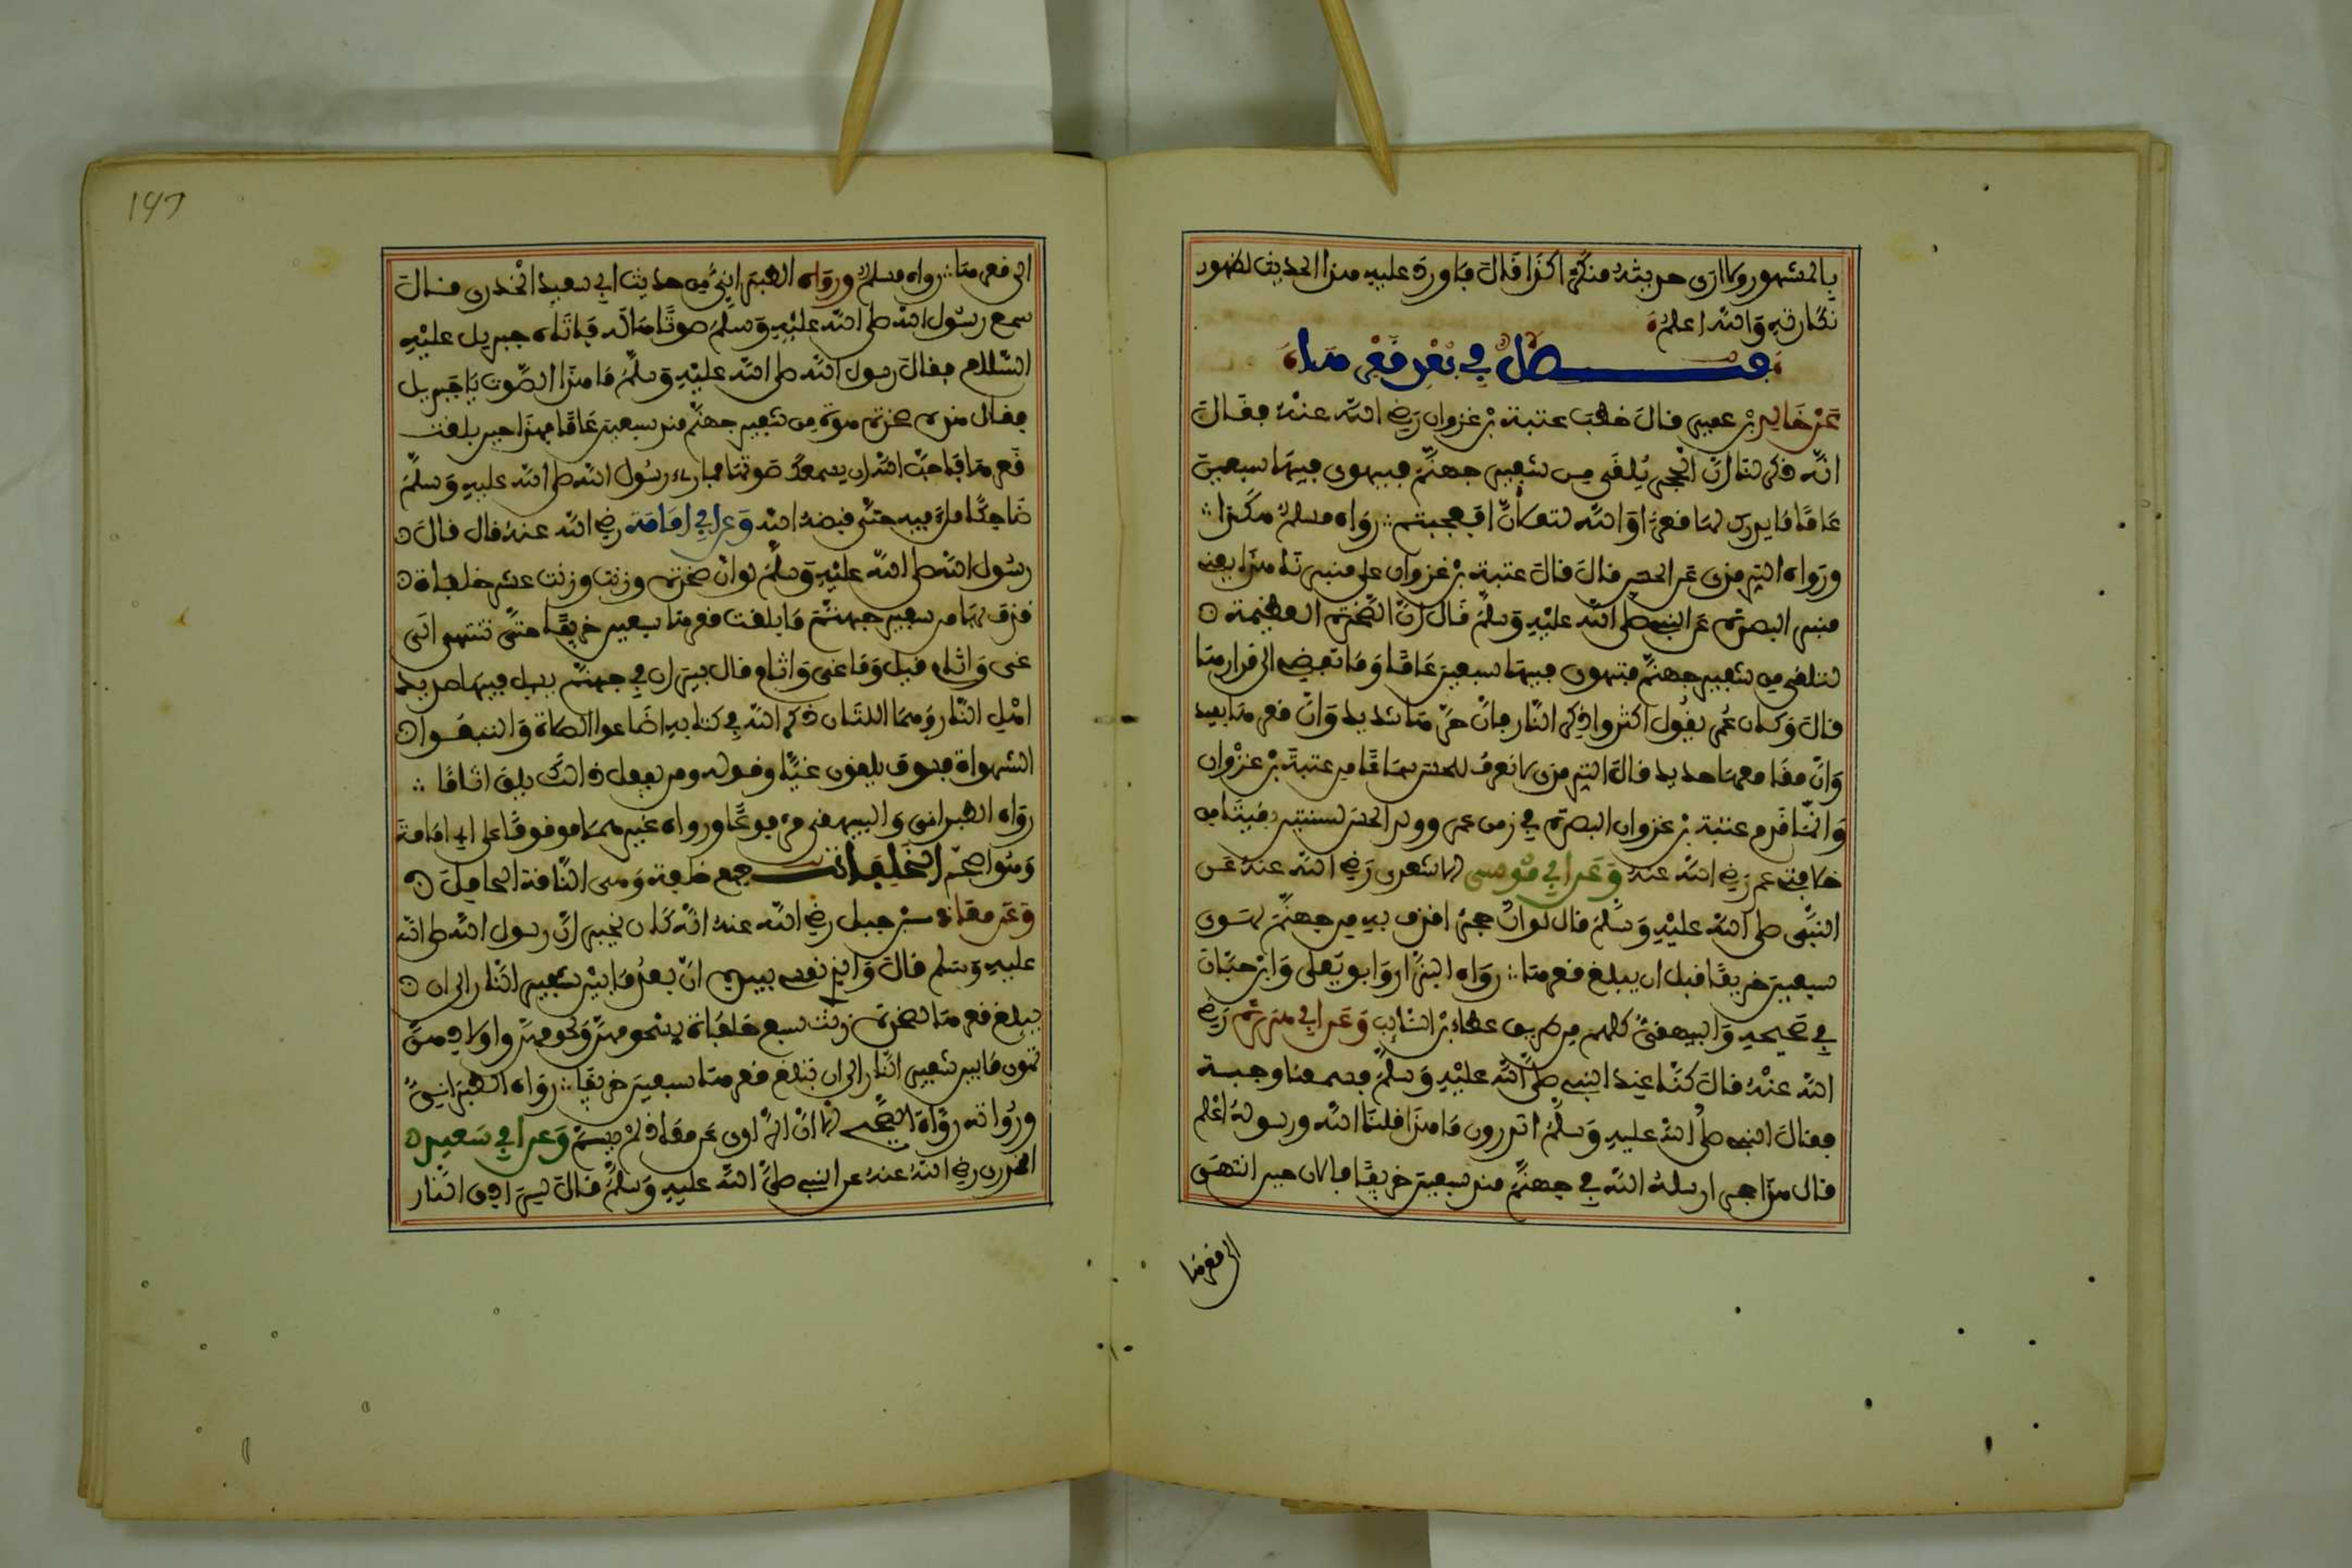 بالمشهور ولا ارى حديثه منكرا كذا قال فاورد عليه هذا الحديث لظهور
نكارته والله اعلم
فصل في بعد قعرها
عن خالد بن عمير قال خطب عتبة بن غزوان رضي الله عنه فقال
انه ذكر لنا ان الحجر يلقى من شفير جهنم فيهوى فيها سبعين
عاما ما يدرك لها قعرا والله لتملأن افعجبتم رواه مسلم هكذا
ورواه الترمذي عن الحسن قال قال عتبة بن غزوان على منبرنا هذا يعني
منبر البصرة عن النبي صلى الله عليه وسلم قال ان الصخرة العظيمة
لتلقى من شفير جهنم فتهوى فيها سبعين عاما وما تفضي الى قرارها
قال وكان عمر يقول اكثروا ذكر النار فان حرها شديد وان قعرها بعيد
وان مقامعها حديد قال الترمذي لا نعرف للحسن سماعا من عتبة بن غزوان
وانما قدم عتبة بن غزوان البصرة في زمن عمر وولد الحسن لسنتين بقيتا من
خلافة عمر رضي الله عنه وعن ابي موسى الاشعري رضي الله عنه عن
النبي صلى الله عليه وسلم قال لو ان حجرا قذف به في جهنم لهوى
سبعين خريفا قبل ان يبلغ قعرها رواه البزار وابو يعلى وابن حبان
في صحيحه والبيهقي كلهم من طريق عطاء بن السائب وعن ابي هريرة رضي
الله عنه قال كنا عند النبي صلى الله عليه وسلم فسمعنا وجبة
فقال النبي صلى الله عليه وسلم اتدرون ما هذا قلنا الله ورسوله اعلم
قال هذا حجر ارسله الله في جهنم منذ سبعين خريفا فالان حين انتهى
الى قعرها
147
الى قعرها رواه مسلم ورواه الطبراني من حديث ابي سعيد الخدري قال
سمع رسول الله صلى الله عليه وسلم صوتا هاله فاتاه جبريل عليه
السلام فقال رسول الله صلى الله عليه وسلم ما هذا الصوت يا جبريل
فقال هذه صخرة هوت من شفير جهنم منذ سبعين عاما فهذا حين بلغت
قعرها فاحب الله ان يسمعك صوتها فما رءي رسول الله صلى الله عليه وسلم
ضاحكا ملء فيه حتى قبضه الله وعن ابي امامة رضي الله عنه قال قال
رسول الله صلى الله عليه وسلم لو ان صخرة وزنت وزنت عشر خلفات
قذف بها من شفير جهنم ما بلغت قعرها سبعين خريفا حتى تنتهى الى
غي واثام قيل وما غي واثام قال بيران في جهنم يسيل فيها صديد
اهل النار وهما اللتان ذكر الله في كتابه اضاعوا الصلاة واتبعوا
الشهوات فسوف يلقون غيا وقوله ومن يفعل ذالك يلق اثاما
رواه الطبراني والبيهقي مرفوعا ورواه غيرهما موقوفا على ابي امامة
وهو اصح الخلفات جمع خلفة وهي الناقة الحامل
وعن معاذ بن جبل رضي الله عنه انه كان يخبر ان رسول الله صلى الله
عليه وسلم قال والذي نفسي بيده ان بعد ما بين شفير النار الى ان
يبلغ قعرها لصخرة زنة سبع خلفات بشحومهن ولحومهن واولادهن
تهوى ما بين شفير النار الى ان تبلغ قعرها سبعين خريفا رواه الطبراني
ورواته رواة الصحيح الا ان الراوي عن معاذ لم يسم وعن ابي سعيد
الخدري رضي الله عنه عن النبي صلى الله عليه وسلم قال لسرادق النار